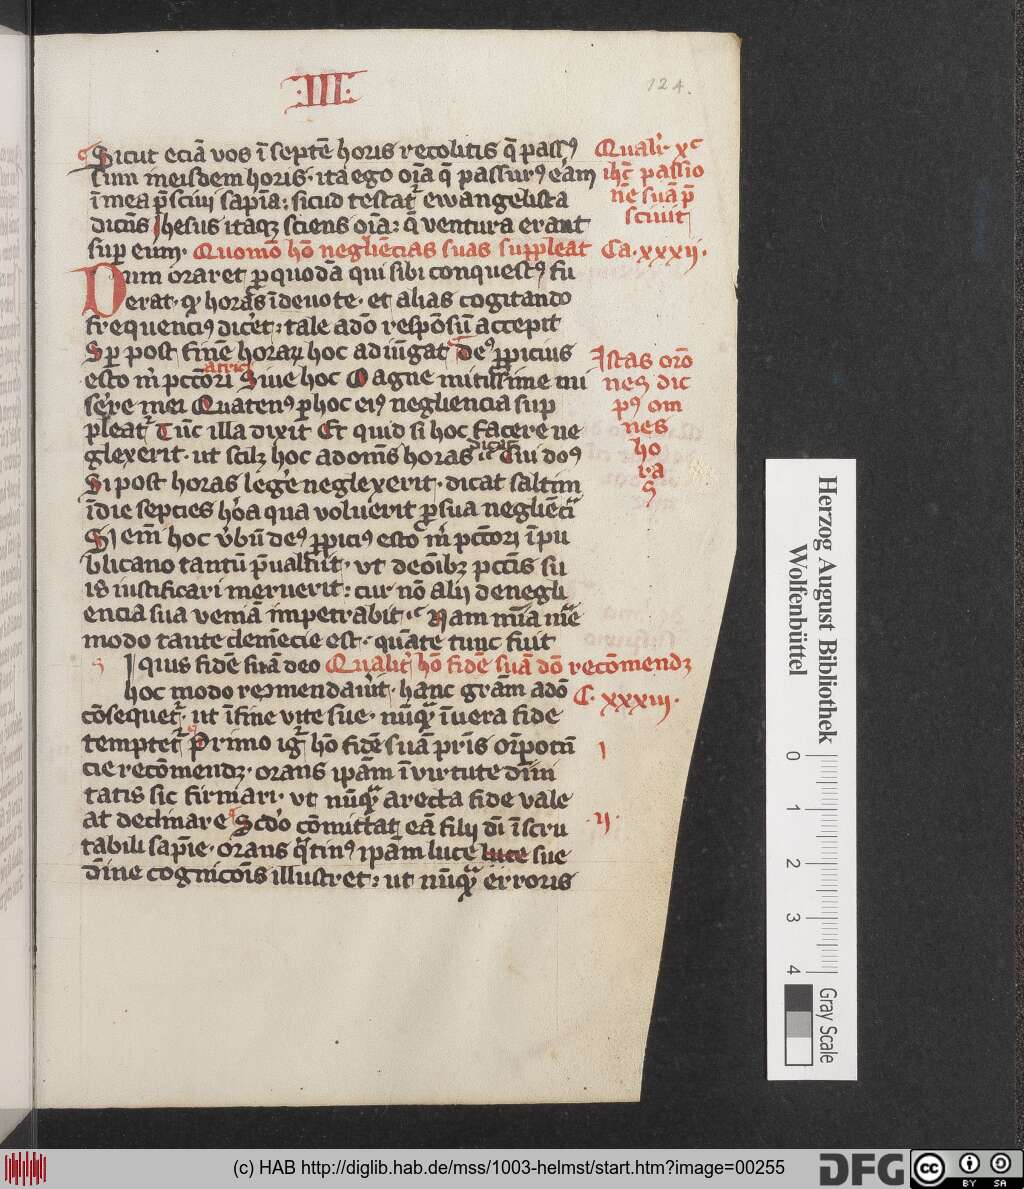 III
124.
Sicut eciā vos ī septē horis recolitis q̄ pass9
sum meisdem horis · ita ego oīa q̄ passur9 eām
ī mea p̄sciui sapīa: sicud testat᷑ ewangelista
dicēs Jhesus itaqꝫ sciens oīa: q̄ ventura erant
suꝑ eum·
Qualr̄ xc̄
ihc̄ passio
nē suā p̄
sciuit
Quomō hō negliēcias suas suppleat Ca · xxxij ·
Dum oraret ꝑ quodā qui sibi conquest9 fu
erat · qꝫ horas īdeuote · et alias cogitando
frequenci9 dicet: tale adō respōsū accepit
Sꝑ post finē horaꝝ hoc adiūgat de9 ꝓpicius
esto m̄ pctōri Siue hoc O agne mitissime mi
serere mei Quaten9 ꝑ hoc ei9 negliencia sup
pleat᷑ Tūc illa dixit Et quid si hoc facere ne
glexerit · ut scilꝫ hoc ad omēs horas dicat Cui do9
Si post horas legere neglexerit · dicat saltim
ī die sepcies hora qua voluerit ꝑ sua negliēcia
Si em̄ hoc v̄bū de9 ꝓpici9 esto m̄ pctōri ī pu
blicano tantū p̄ualuit · vt de oībꝫ pctīs su
is iustificari meruerit: cur nō alij de negli
encia sua veniā impetrabit · Nam mīa mē
modo tante clemēcie est · quāte tunc fuit
Istas orō
nes dic
p9 om
nes
ho
ra
s
Iquis fidē suā deo Qualit᷑ hō fidē suā dō recōmendꝫ
hoc modo recomendauīt · hanc grām adō
C · xxxiij ·
cōsequet᷑ · ut ī fine vite sue · nūqᷓ ī vera fide
temptet᷑ Primo ig᷑ hō fidē suā prīs oīpotē
cie recōmendꝫ · orans ipām ī virtute diīni
tatis sic firmari · vt nūqᷓ a recta fide vale
at declinare Scdo cōmittat eā filij dī īscru
tabili sapīe · orans qᷓtin9 ipām luce luce sue
dīne cognicōis illustret: ut nūqᷓ erroris
j
· ij ·
Herzog August Bibliothek
Wolfenbüttel
0 1 2 3 4
Gray Scale
(c) HAB http://diglib.hab.de/mss/1003-helmst/start.htm?image=00255
DFG
cc
BY SA